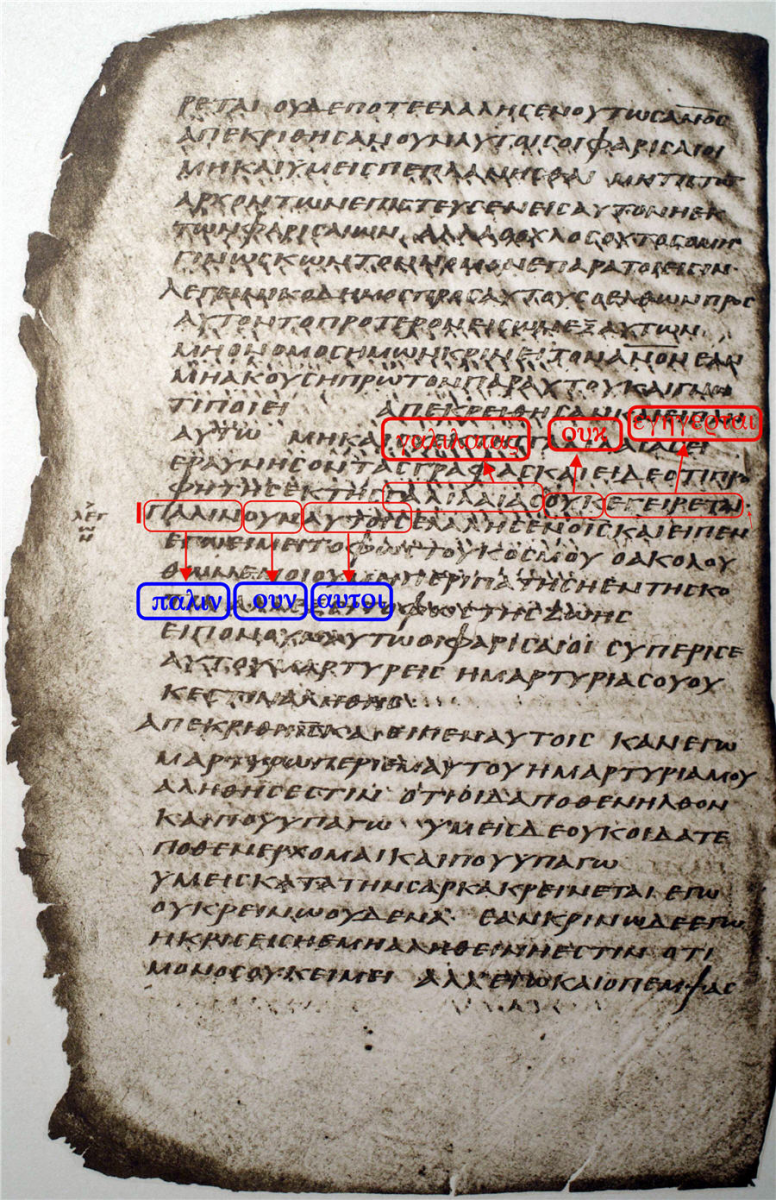 ΡΕΤΑΙ ΟΥΔΕΠΟΤΕΕΛΑΛΗСΕΝΟΥΤΩСΑΝΟС
ΑΠΕΚΡΙΘΗСΑΝΟΥΝΑΥΤΟΙСΟΙΦΑΡΙСΑΙΟΙ
ΜΗΚΑΙΥΜΕΙСΠΕΠΛΑΝΗСΘΑΙ ΜΗΤΙСΤΩ
ΑΡΧΟΝΤΩΝΕΠΙСΤΕΥСΕΝΕΙСΑΥΤΟΝΗΕΚ
ΤΩΝΦΑΡΙСΑΙΩΝ ΑΛΛΑΟΟΧΛΟСΟΥΤΟСΟΜΗ
ΓΙΝΩСΚΩΝΤΟΝΝΟΜΟΝΕΠΑΡΑΤΟΙΕΙСΙΝ·
ΛΕΓΕΙΝΙΚΟΔΗΜΟСΠΡΟСΑΥΤΟΥСΟΕΛΘΩΝΠΡΟС
ΑΥΤΟΝΤΟΠΡΟΤΕΡΟΝΕΙСΩΝΕΞΑΥΤΩΝ
ΜΗΟΝΟΜΟСΗΜΩΝΚΡΙΝΕΙΤΟΝΑΝΟΝΕΑΝ
ΜΗΑΚΟΥСΗΠΡΩΤΟΝΠΑΡΑΥΤΟΥΚΑΙΓΝΩ
ΤΙΠΟΙΕΙ ΑΠΕΚΡΕΙΘΗСΑΝΚΑΙΕΙΠΟΝ
εγηγερται
ΑΥΤΩ ΜΗΚΑΙ
γαλιλαιας ουκ
ΕΡΑΥΝΗСΟΝΤΑСΓΡΑΦΑСΚΑΙΕΙΔΕΟΤΙΠΡΟ
ΦΗΤΗСΕΚΤΗСΓΑΛΙΛΑΙΑСΟΥΚΕΓΕΙΡΕΤΑΙ·
ΠΑΛΙΝΟΥΝΑΥΤΟΙСΕΛΑΛΗСΕΝΟΙСΚΑΙΕΙΠΕΝ
ΕΓΩΕΙΜΕΙΤΟΦΩСΤΟΥΚΟСΜΟΥ ΟΑΚΟΛΟΥ
ΘΩΝΕΜΟΙΟΥΜΗΠΕΡΙΠΑΤΗСΗΕΝΤΗСΚΟ
παλιν ουν αυτοι ΦΩСΤΗСΖΩΗС
ΕΙΠΟΝΟΥΝΑΥΤΩΟΙΦΑΡΙСΑΙΟΙ СΥΠΕΡΙСΕ
ΑΥΤΟΥΜΑΡΤΥΡΕΙС ΗΜΑΡΤΥΡΙΑСΟΥΟΥ
ΚΕСΤΙΝΑΛΗΘΗС
ΑΠΕΚΡΙΘΗΙСΚΑΙΕΙΠΕΝΑΥΤΟΙС ΚΑΝΕΓΩ
ΜΑΡΤΥΡΩΠΕΡΙΕΜΑΥΤΟΥΗΜΑΡΤΥΡΙΑΜΟΥ
ΑΛΗΘΗСΕСΤΙΝ ΟΤΙΟΙΔΑΠΟΘΕΝΗΛΘΟΝ
ΚΑΙΠΟΥΥΠΑΓΩ ΥΜΕΙСΔΕΟΥΚΟΙΔΑΤΕ
ΠΟΘΕΝΕΡΧΟΜΑΙΚΑΙΠΟΥΥΠΑΓΩ
ΥΜΕΙСΚΑΤΑΤΗΝСΑΡΚΑΚΡΕΙΝΕΤΑΙ ΕΓΩ
ΟΥΚΡΕΙΝΩΟΥΔΕΝΑ· ΕΑΝΚΡΙΝΩΔΕΕΓΩ
ΗΚΡΙСΕΙСΗΕΜΗΑΛΗΘΕΙΝΗΕСΤΙΝ ΟΤΙ
ΜΟΝΟСΟΥΚΕΙΜΕΙ ΑΛΛΕΓΩΚΑΙΟΠΕΜΨΑС